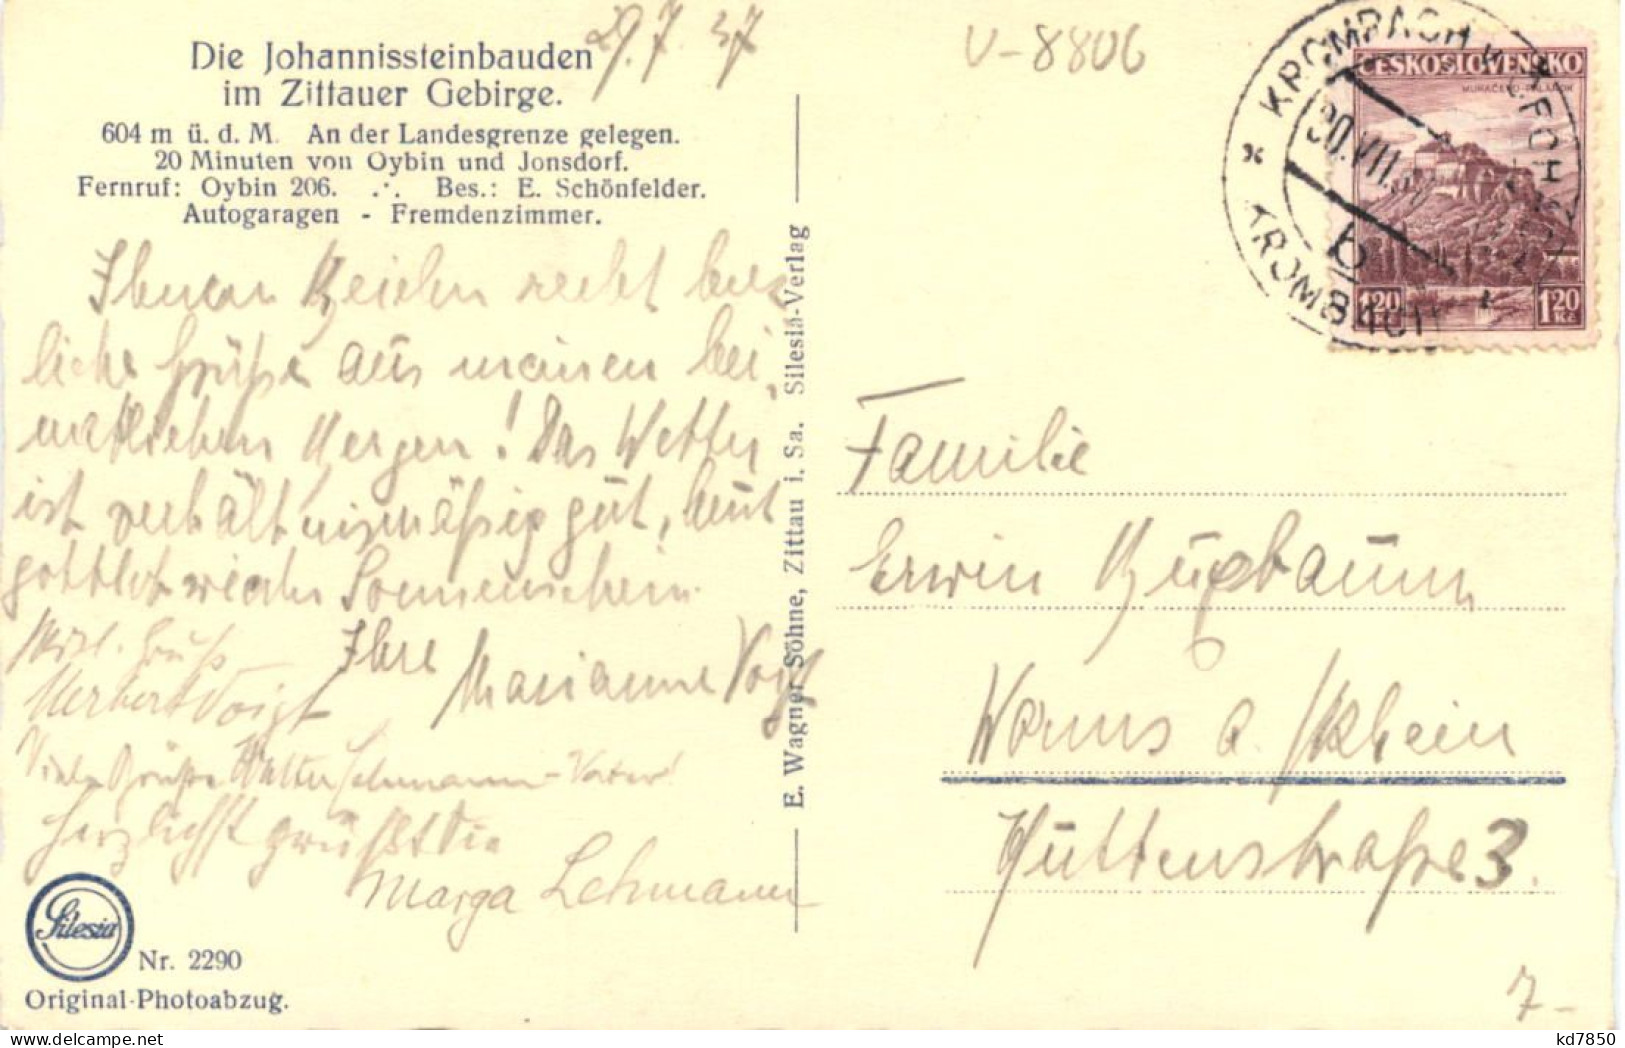 29.7.37
V-8806
Die Johannissteinbauden
im Zittauer Gebirge.
604 m ü. d. M. An der Landesgrenze gelegen.
20 Minuten von Oybin und Jonsdorf.
Fernruf: Oybin 206. .·. Bes.: E. Schönfelder.
Autogaragen - Fremdenzimmer.
recht herz
liche Grüße aus meinen hei,
matlichen Bergen! Das Wetter
ist verhältnismäßig gut, heut
gottlob wieder Sonnenschein.
Ihre Marianne Voigt
Herzl. Gruß
Herbert Voigt
Viele Grüße Walter Lehmann - Vater!
Herzlichst grüßt Sie
Marga Lehmann
Silesia
Nr. 2290
Original-Photoabzug.
E. Wagner Söhne, Zittau i. Sa. Silesia-Verlag
KROMPACH U CECH
KROMBACH
30.VII.
b
ČESKOSLOVENSKO
MUKAČEVO-PALANOK
1.20 Kč
1.20 Kč
Familie
Erwin
Worms a./Rhein
Huttenstraße 3.
7-
kd7850